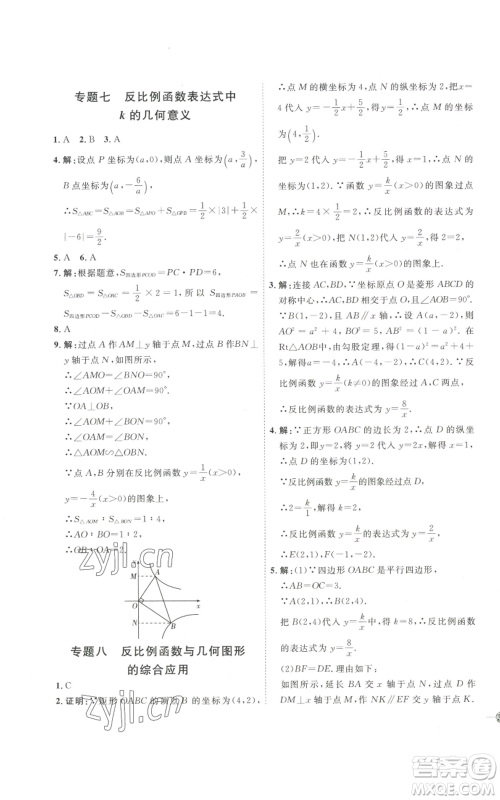 专题七 反比例函数表达式中
k 的几何意义
1. A 2. B 3. A
4. 解:设点 P 坐标为(a,0),则点 A 坐标为(a,3/a),
B 点坐标为(a,-6/a),
∴S△ABC=S△AOB=S△APO+S△OPB=1/2×|3|+1/2×
|-6|=9/2.
5. A 6. A
7. 解:根据题意,S四边形PCOD=PC·PD=6,
S△OBD=S△OAC=1/2×2=1,
∴S四边形PAOB=S四边形PCOD-S△OBD-S△OAC=6-1-1=4.
8. A
9. 解:过点 A 作 AM⊥y 轴于点 M,过点 B 作 BN⊥
y 轴于点 N,如图所示,
∴∠AMO=∠BNO=90°,
∴∠AOM+∠OAM=90°.
∵OA⊥OB,
∴∠AOM+∠BON=90°,
∴∠OAM=∠BON,
∴△AOM∽△OBN.
∵点 A,B 分别在反比例函数 y=1/x(x>0)的图象上,
y=-4/x(x>0)的图象上,
∴S△AOM∶S△BON=1∶4,
∴AO∶BO=1∶2,
∴OB∶OA=2.
y
M
A
O
x
N
B
专题八 反比例函数与几何图形
的综合应用
1. C
2. 证明:∵矩形 OABC 的顶点 B 的坐标为(4,2),
∴点 M 的横坐标为 4,点 N 的纵坐标为 2.把 x=
4 代入 y=-1/2x+5/2,得 y=1/2,∴点 M 的坐标
为(4,1/2).
把 y=2 代入 y=-1/2x+5/2,得 x=1,∴点 N 的坐标
为(1,2).∵函数 y=k/x(x>0)的图象过点 M,
∴k=4×1/2=2,∴y=2/x(x>0).
把 N(1,2)代入 y=2/x,得 2=2,
∴点 N 也在函数 y=k/x(x>0)的图象上.
3. 解:连接 AC,BD.∵坐标原点 O 是菱形 ABCD 的
对称中心,∴AC,BD 经过点 O,且∠AOB=90°.
∵B(1,2),且 AD∥x 轴,∴设 A(a,-2),则
AO²=a²+4,BO²=5,AB²=(1-a)²+16.在
Rt△AOB 中,由勾股定理得,(1-a)²+16=a²+4
+5,∴a=4,∴A(4,-2),∴C(-4,2).
∵反比例函数 y=k/x(k≠0)的图象经过 A,C 两点,
∴反比例函数的表达式为
4. 解:∵正方形 OABC 的边长为 2,∴点 D 的纵坐
标为 2,即 y=2,将 y=2 代入 y=2x,得 x=1,
∴点 D 的坐标为(1,2).
∵反比例函数 y=k/x 的图象经过点 D,
∴2=k/1,解得 k=2,
∴反比例函数的表达式为 y=2/x.
∴E(2,1),F(-1,-2).
5. 解:(1)∵四边形 OABC 是平行四边形,
∴AB=OC=3.
∵A(2,4),∴B(5,4).
把 A(2,4)代入 y=k/x(x>0)中,得 k=8,
∴反比例函数的表达式为 y=8/x(x>0).
(2)BF=DE.理由如下:
如图所示,延长 BA 交 y 轴于点 N,过点 D 作
DM⊥x 轴于点 M,则 NK∥OF,AN⊥y 轴.
zyjl.cn
zyjl.cn